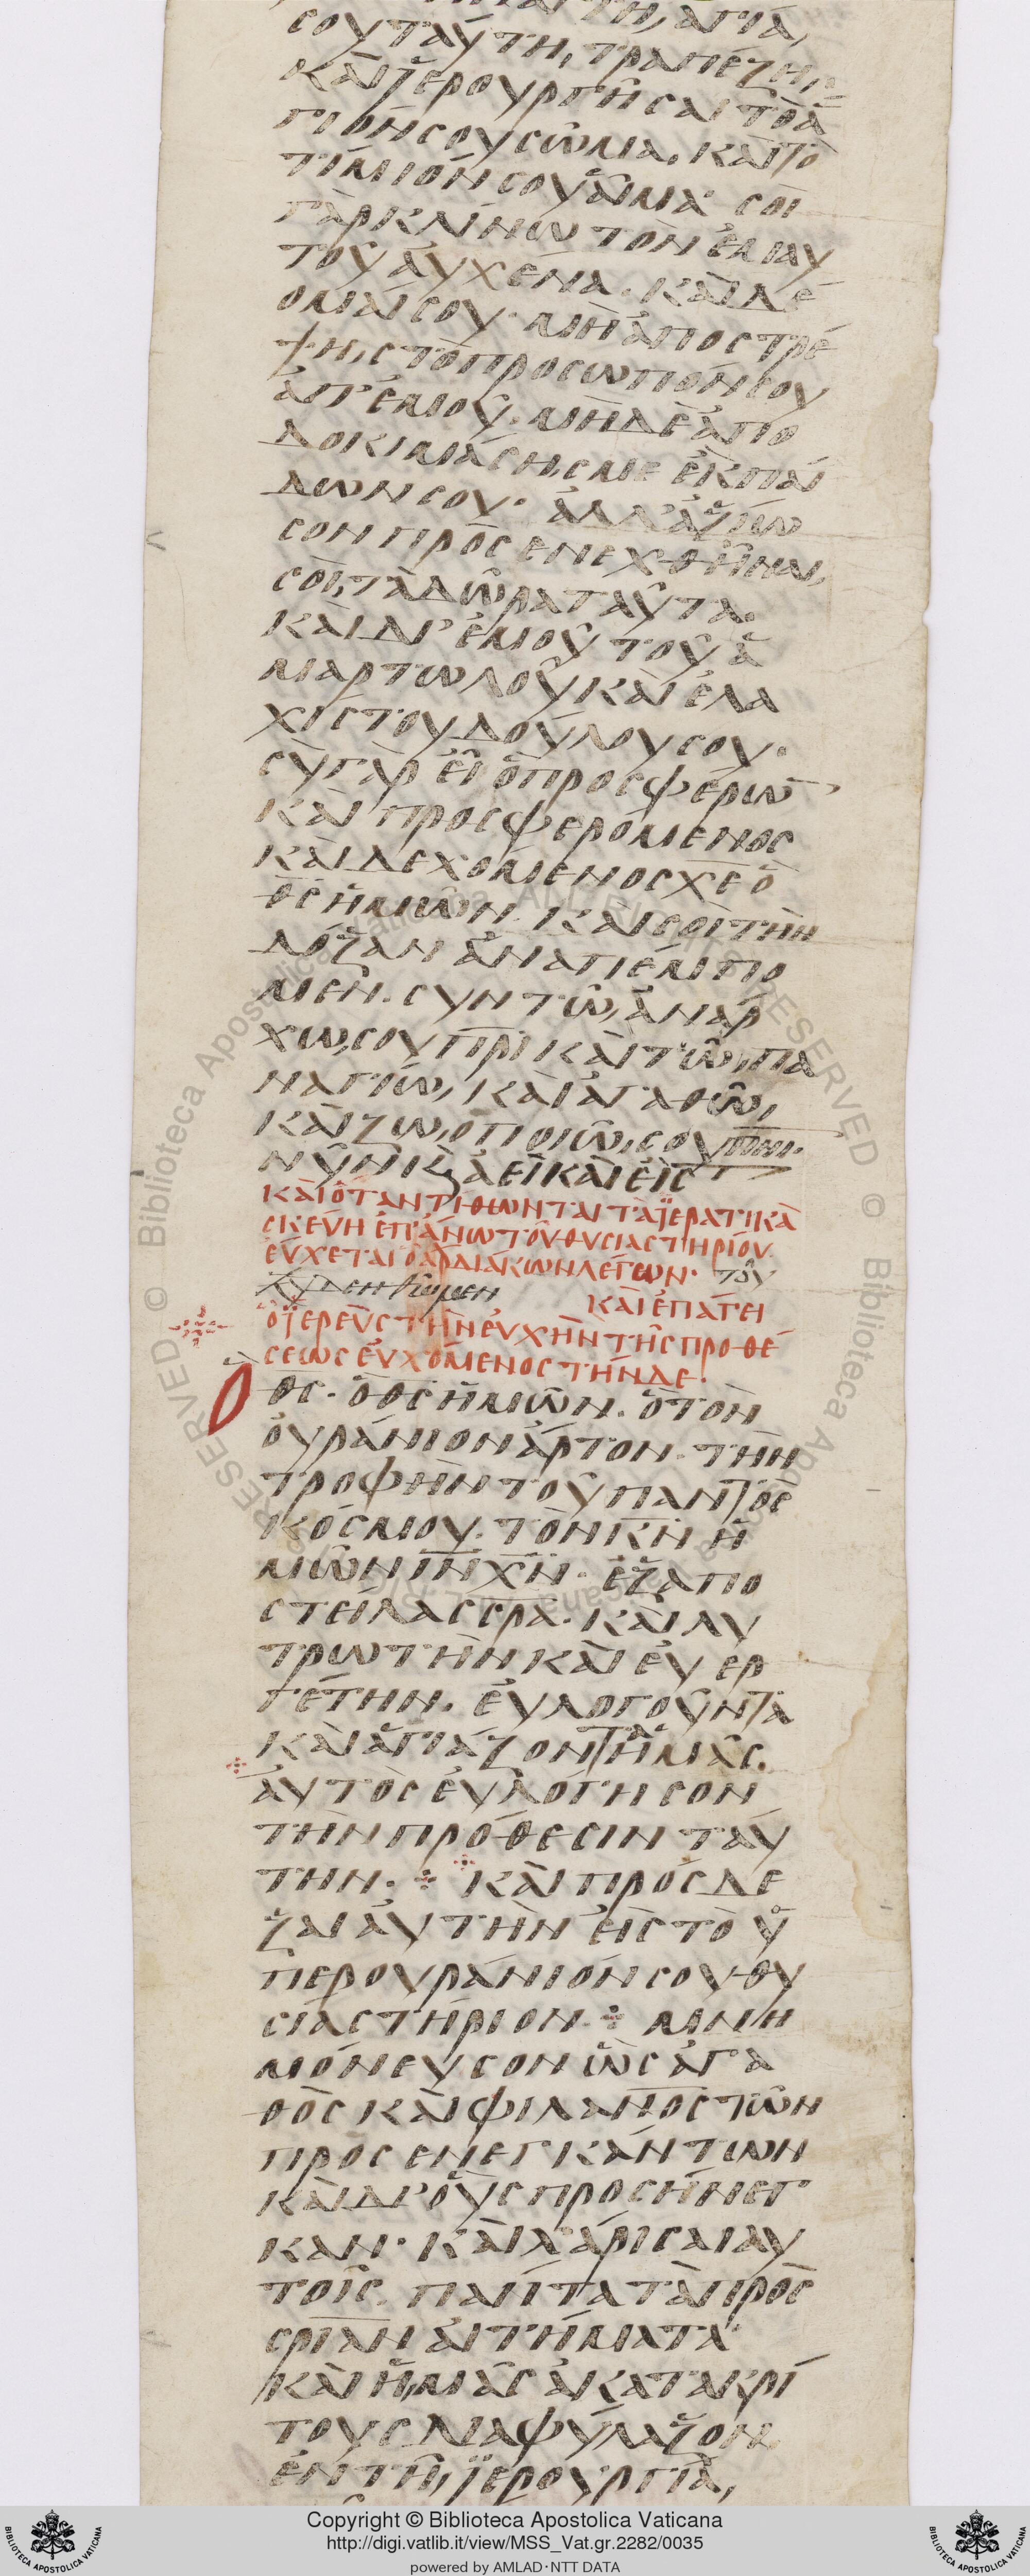 σου ταύτη, τραπέζη,
καὶ ἱερουργῆσαι τὸ ἅ
γιόν σου σῶμα, καὶ τὸ
τίμιόν σου αἷμα· σοὶ
γὰρ κλίνω τὸν ἐμαυ
τοῦ αὐχένα. καὶ δέ
ομαί σου· μὴ ἀποστρέ
ψης τὸ πρόσωπόν σου
ἀπ' ἐμοῦ. μὴ δὲ ἀπο
δοκιμάσης με ἐκ παί
δων σου. ἀλλ' ἀξίω
σον προσενεχθῆναι
σοι, τὰ δῶρα ταῦτα.
καὶ δι' ἐμοῦ τοῦ ἁ
μαρτωλοῦ καὶ ἐλα
χίστου δούλου σου.
σὺ γὰρ εἶ ὁ προσφέρων
καὶ προσφερόμενος
καὶ δεχόμενος χε ὁ
θς ἡμῶν. καὶ σοὶ τὴν
δόξαν ἀναπέμπο
μεν. σὺν τῶ ἀνάρ
χω σου πρι καὶ τῶ πα
ναγίω, καὶ ἀγαθῶ,
καὶ ζωοποιῶ σου πνι.
νῦν κ ἀεὶ καὶ εἰς
καὶ ὅταν τιθῶνται τὰ ἱερατικὰ
σκεύη ἐπάνω τοῦ θυσιαστηρίου
εὔχεται ὁ ἀρδιάκων λέγων· τοῦ
κυ δεηθῶμεν καὶ ἐπάγει
ὁ ἱερεὺς τὴν εὐχὴν τῆς προθέ
σεως εὐχόμενος τήνδε.
Ὁ θς. ὁ θς ἡμῶν. ὁ τὸν
οὐράνιον ἄρτον. τὴν
τροφὴν τοῦ παντὸς
κόσμου. τὸν κν ἡ
μῶν ιν χν. ἐξαπο
στείλας σρα. καὶ λυ
τρωτὴν καὶ εὐερ
γέτην. εὐλογοῦντα
καὶ ἁγιάζοντα ἡμᾶς.
αὐτὸς εὐλόγησον
τὴν πρόθεσιν ταύ
την. καὶ πρόσδε
ξαι αὐτὴν εἰς τὸ ὑ
περουράνιόν σου θυ
σιαστήριον. μνη
μόνευσον ὡς ἀγα
θὸς καὶ φιλανος τῶν
προσενεγκάντων
καὶ δι' οὓς προσήνεγ
καν. καὶ χάρισαι αυ
τοῖς πάντα τὰ πρὸς
σριαν αἰτήματα
καὶ ἡμᾶς ἀκατακρί
τους διαφύλαξον
ἐν τῆ, ἱερουργία,
Copyright © Biblioteca Apostolica Vaticana
http://digi.vatlib.it/view/MSS_Vat.gr.2282/0035
powered by AMLAD·NTT DATA